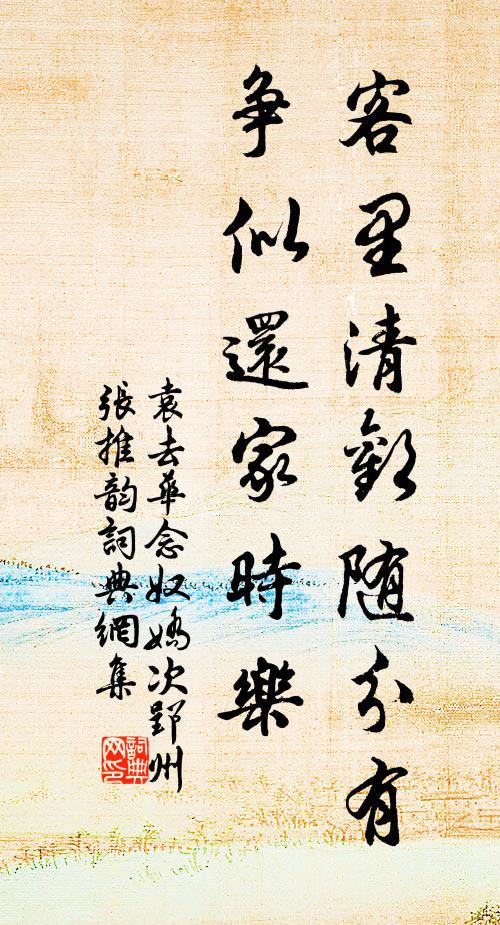 客里清歡随分有
争似還家時樂
袁去華念奴嬌次郢州
張推韵詞典網集
詞典
网印